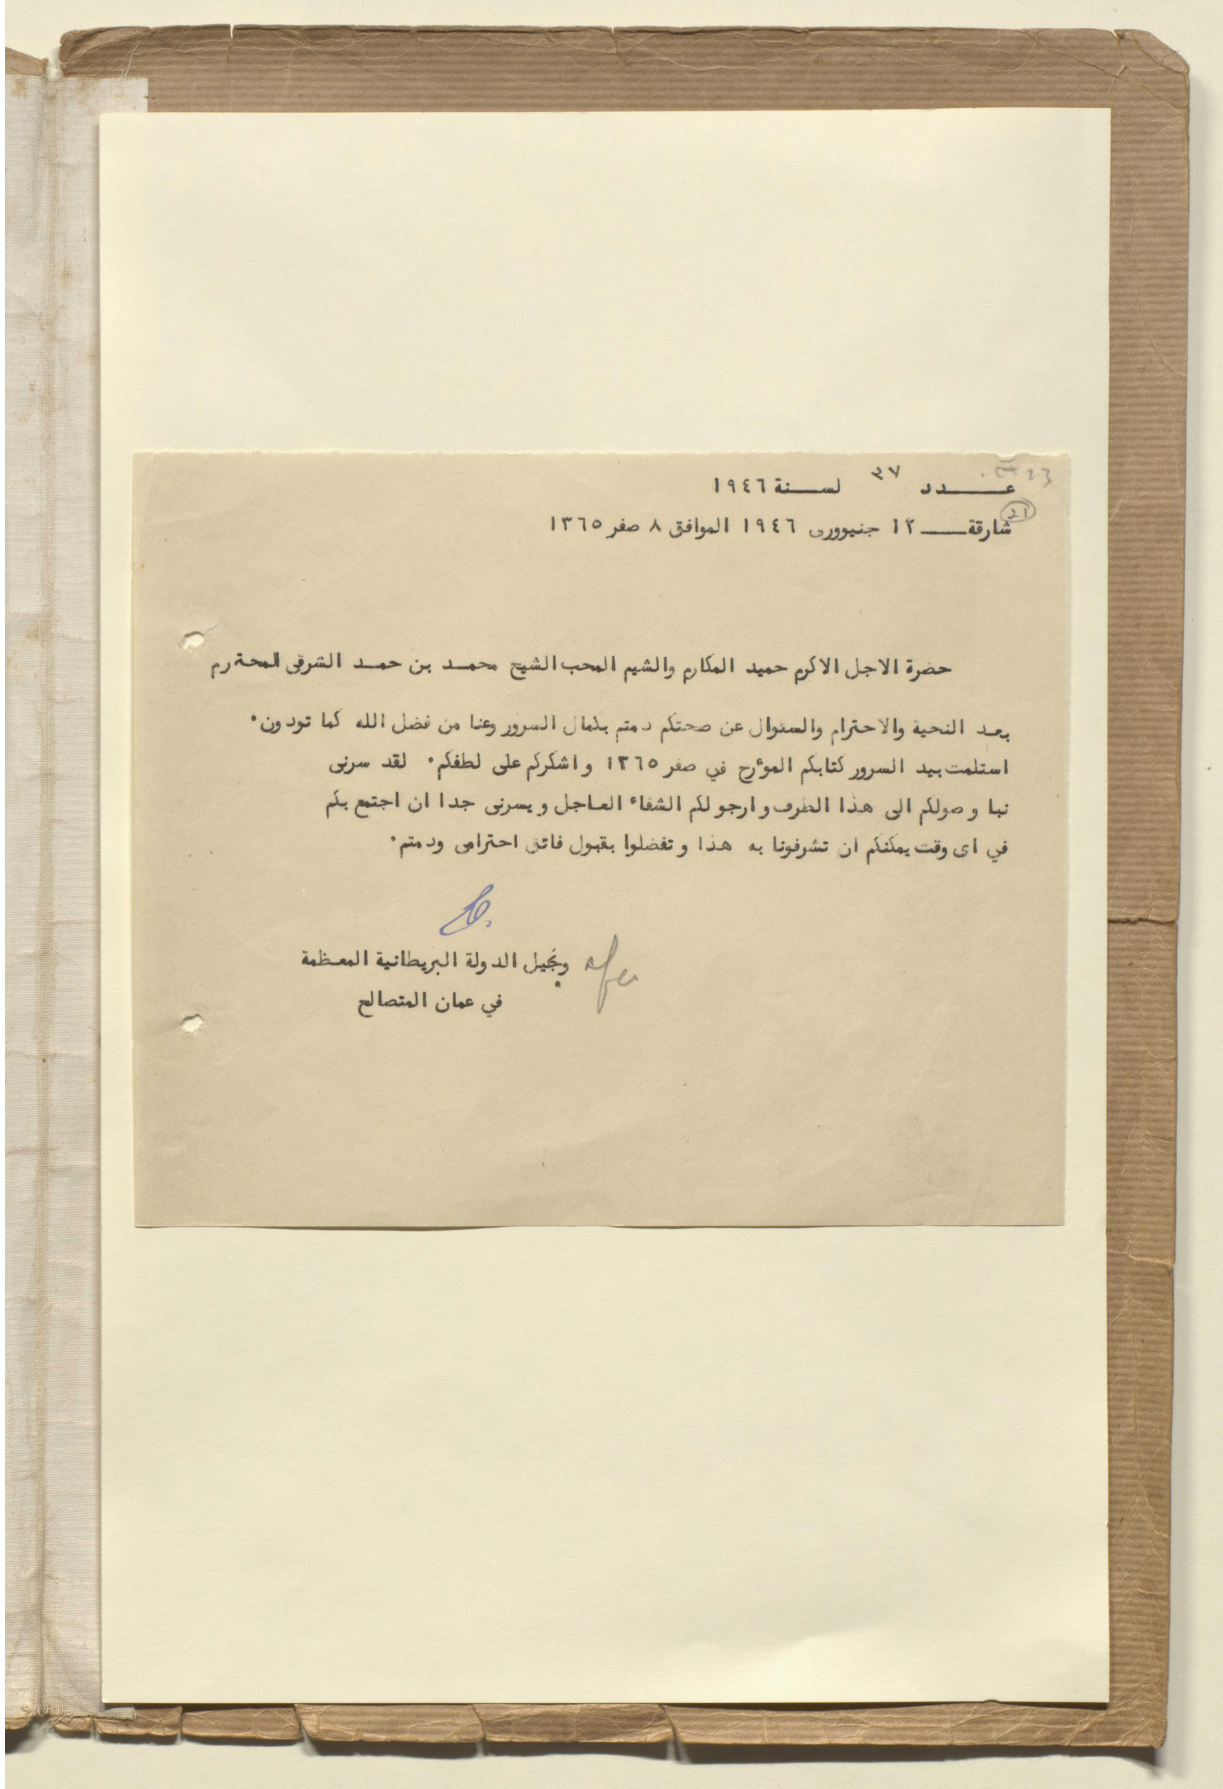 عـــدد ٣٧ لســنة ١٩٤٦
21
شارقة ـــ ١٢ جنيوورى ١٩٤٦ الموافق ٨ صفر ١٣٦٥
حضرة الاجل الاكرم حميد المكارم والشيم المحب الشيخ محمد بن حمد الشرقى المحترم
بعد التحية والاحترام والسئوال عن صحتكم دمتم بكمال السرور وعنا من فضل الله كما تودون٠
استلمت بيد السرور كتابكم المؤرخ في صفر ١٣٦٥ واشكركم على لطفكم٠ لقد سرنى
نبا وصولكم الى هذا الطرف وارجو لكم الشفاء العاجل ويسرنى جدا ان اجتمع بكم
في اى وقت يمكنكم ان تشرفونا به هذا وتفضلوا بقبول فائق احترامى ودمتم٠
الدولة البريطانية المعظمة
في عمان المتصالح